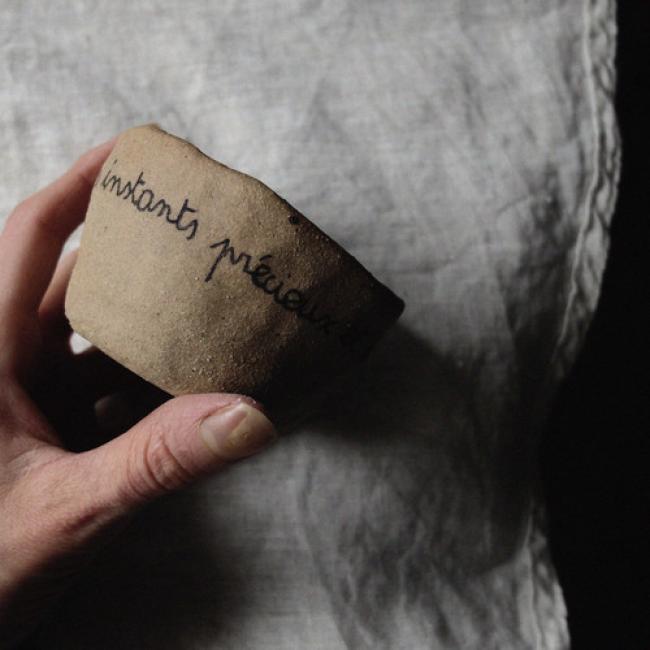 instants précieux et